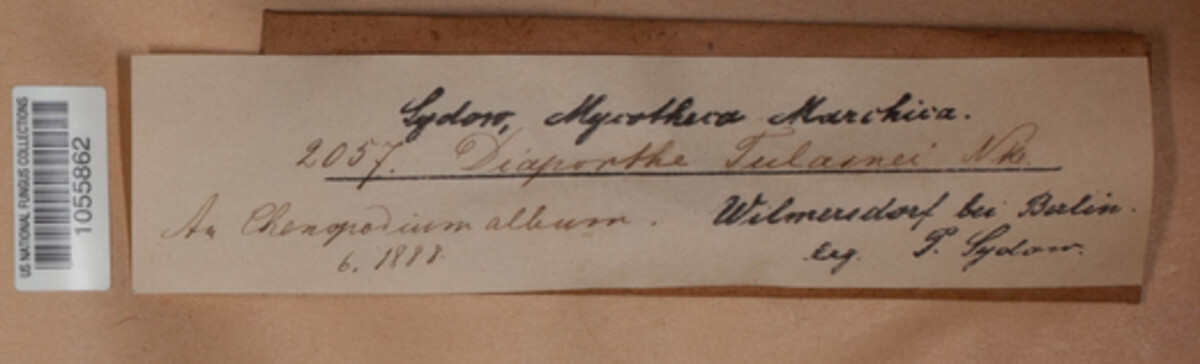 US NATIONAL FUNGUS COLLECTIONS
1055862
Sydow, Mycotheca Marchica.
2057. Diaporthe Tulasnei Nke.
An Chenopodium album. Wilmersdorf bei Berlin.
6. 1888. leg. P. Sydow.